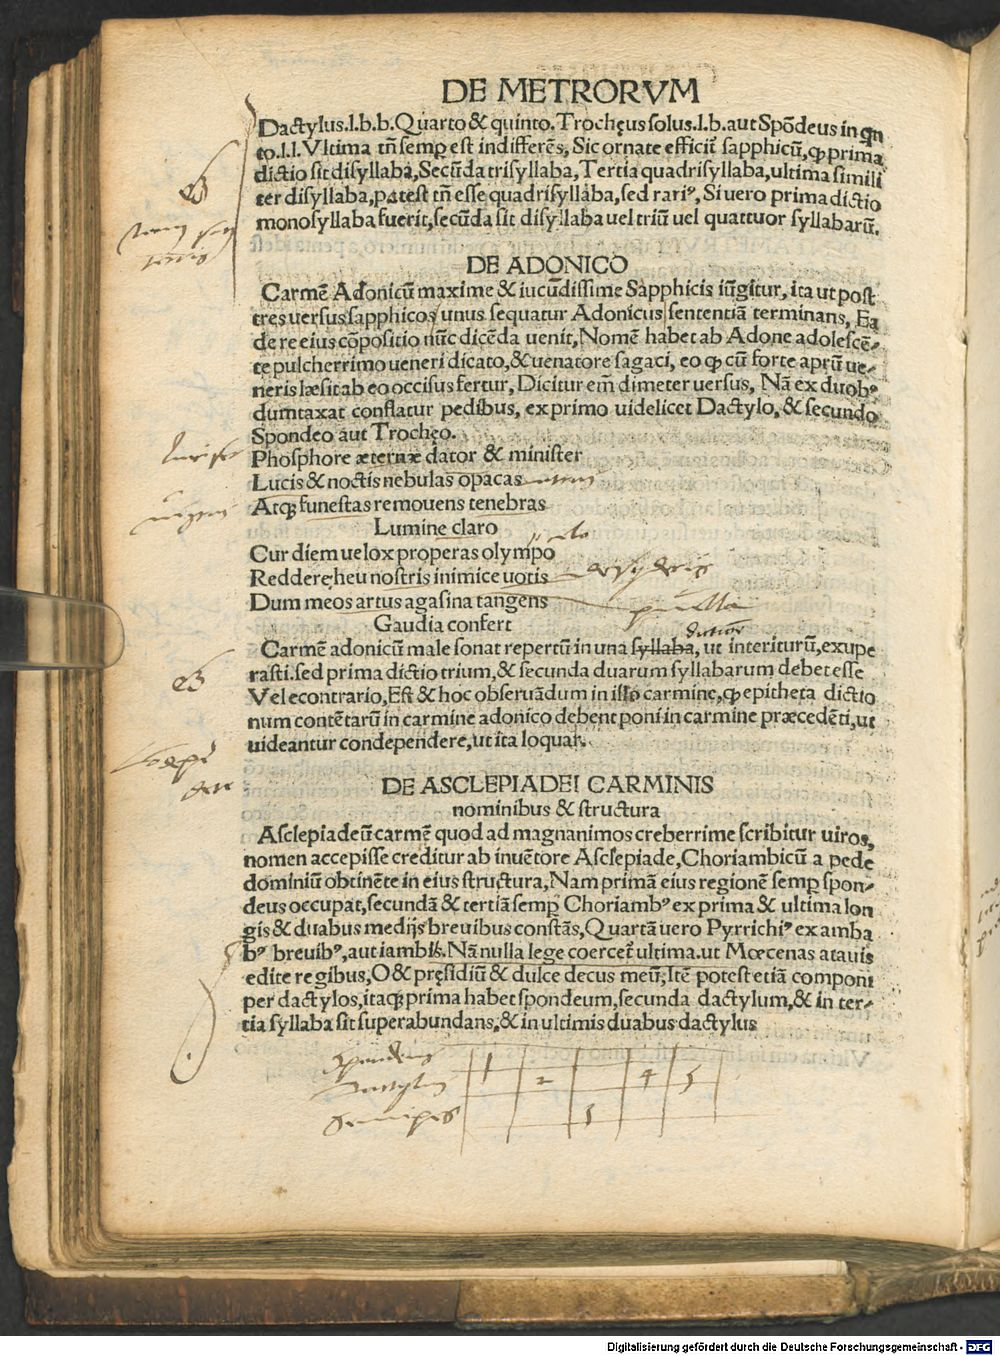 DE METRORVM
Dactylus.l.b.b.Quarto & quinto.Trochęus solus.l.b.aut Spōdeus in qn
to.l.l.Vltima tñ semp est indifferēs, Sic ornate efficit sapphicū, qp prima
dictio sit disyllaba, Secūda trisyllaba, Tertia quadrisyllaba, ultima simili
ter disyllaba, potest tñ esse quadrisyllaba, sed rariꝰ, Si uero prima dictio
monosyllaba fuerit, secūda sit disyllaba uel triū uel quattuor syllabarū.
DE ADONICO
Carmē Adonicū maxime & iucūdissime Sapphicis iūgitur, ita ut post
tres uersus sapphicos unus sequatur Adonicus sententiā terminans, Ea
de re eius cōpositio nūc dicēda uenit, Nomē habet ab Adone adolescē-
te pulcherrimo ueneri dicato, & uenatore sagaci, eo qp cū forte aprū ue-
neris læsit ab eo occisus fertur, Dicitur em̄ dimeter uersus, Nā ex duobꝰ
dumtaxat conflatur pedibus, ex primo uidelicet Dactylo, & secundo
Spondeo aut Trochęo.
Phosphore æternæ dator & minister
Lucis & noctis nebulas opacas
Atqꝫ funestas remouens tenebras
Lumine claro
Cur diem uelox properas olympo
Reddere, heu nostris inimice uotis
Dum meos artus agasina tangens
Gaudia confert
Carmē adonicū male sonat repertū in una syllaba, ut interiturū, exupe
rasti. sed prima dictio trium, & secunda duarum syllabarum debet esse
Vel econtrario, Est & hoc obseruādum in isto carmine, qp epitheta dictio
num contētarū in carmine adonico debent poni in carmine præcedēti, ut
uideantur condependere, ut ita loquar.
DE ASCLEPIADEI CARMINIS
nominibus & structura
Asclepiadeū carmē quod ad magnanimos creberrime scribitur uiros,
nomen accepisse creditur ab inuētore Asclepiade, Choriambicū a pede
dominiū obtinēte in eius structura, Nam primā eius regionē semp spon-
deus occupat, secundā & tertiā semp Choriambꝰ ex prima & ultima lon
gis & duabus medijs breuibus constās, Quartā uero Pyrrichiꝰ ex amba
bꝰ breuibꝰ, aut iambꝰ. Nā nulla lege coercet ultima. ut Mœcenas atauis
edite regibus, O & pręsidiū & dulce decus meū, Itē potest etiā componi
per dactylos, itaqꝫ prima habet spondeum, secunda dactylum, & in ter-
tia syllaba sit superabundans, & in ultimis duabus dactylus
spondeus 1
Dactylus 2 4 5
Semipes 3
Digitalisierung gefördert durch die Deutsche Forschungsgemeinschaft - DFG